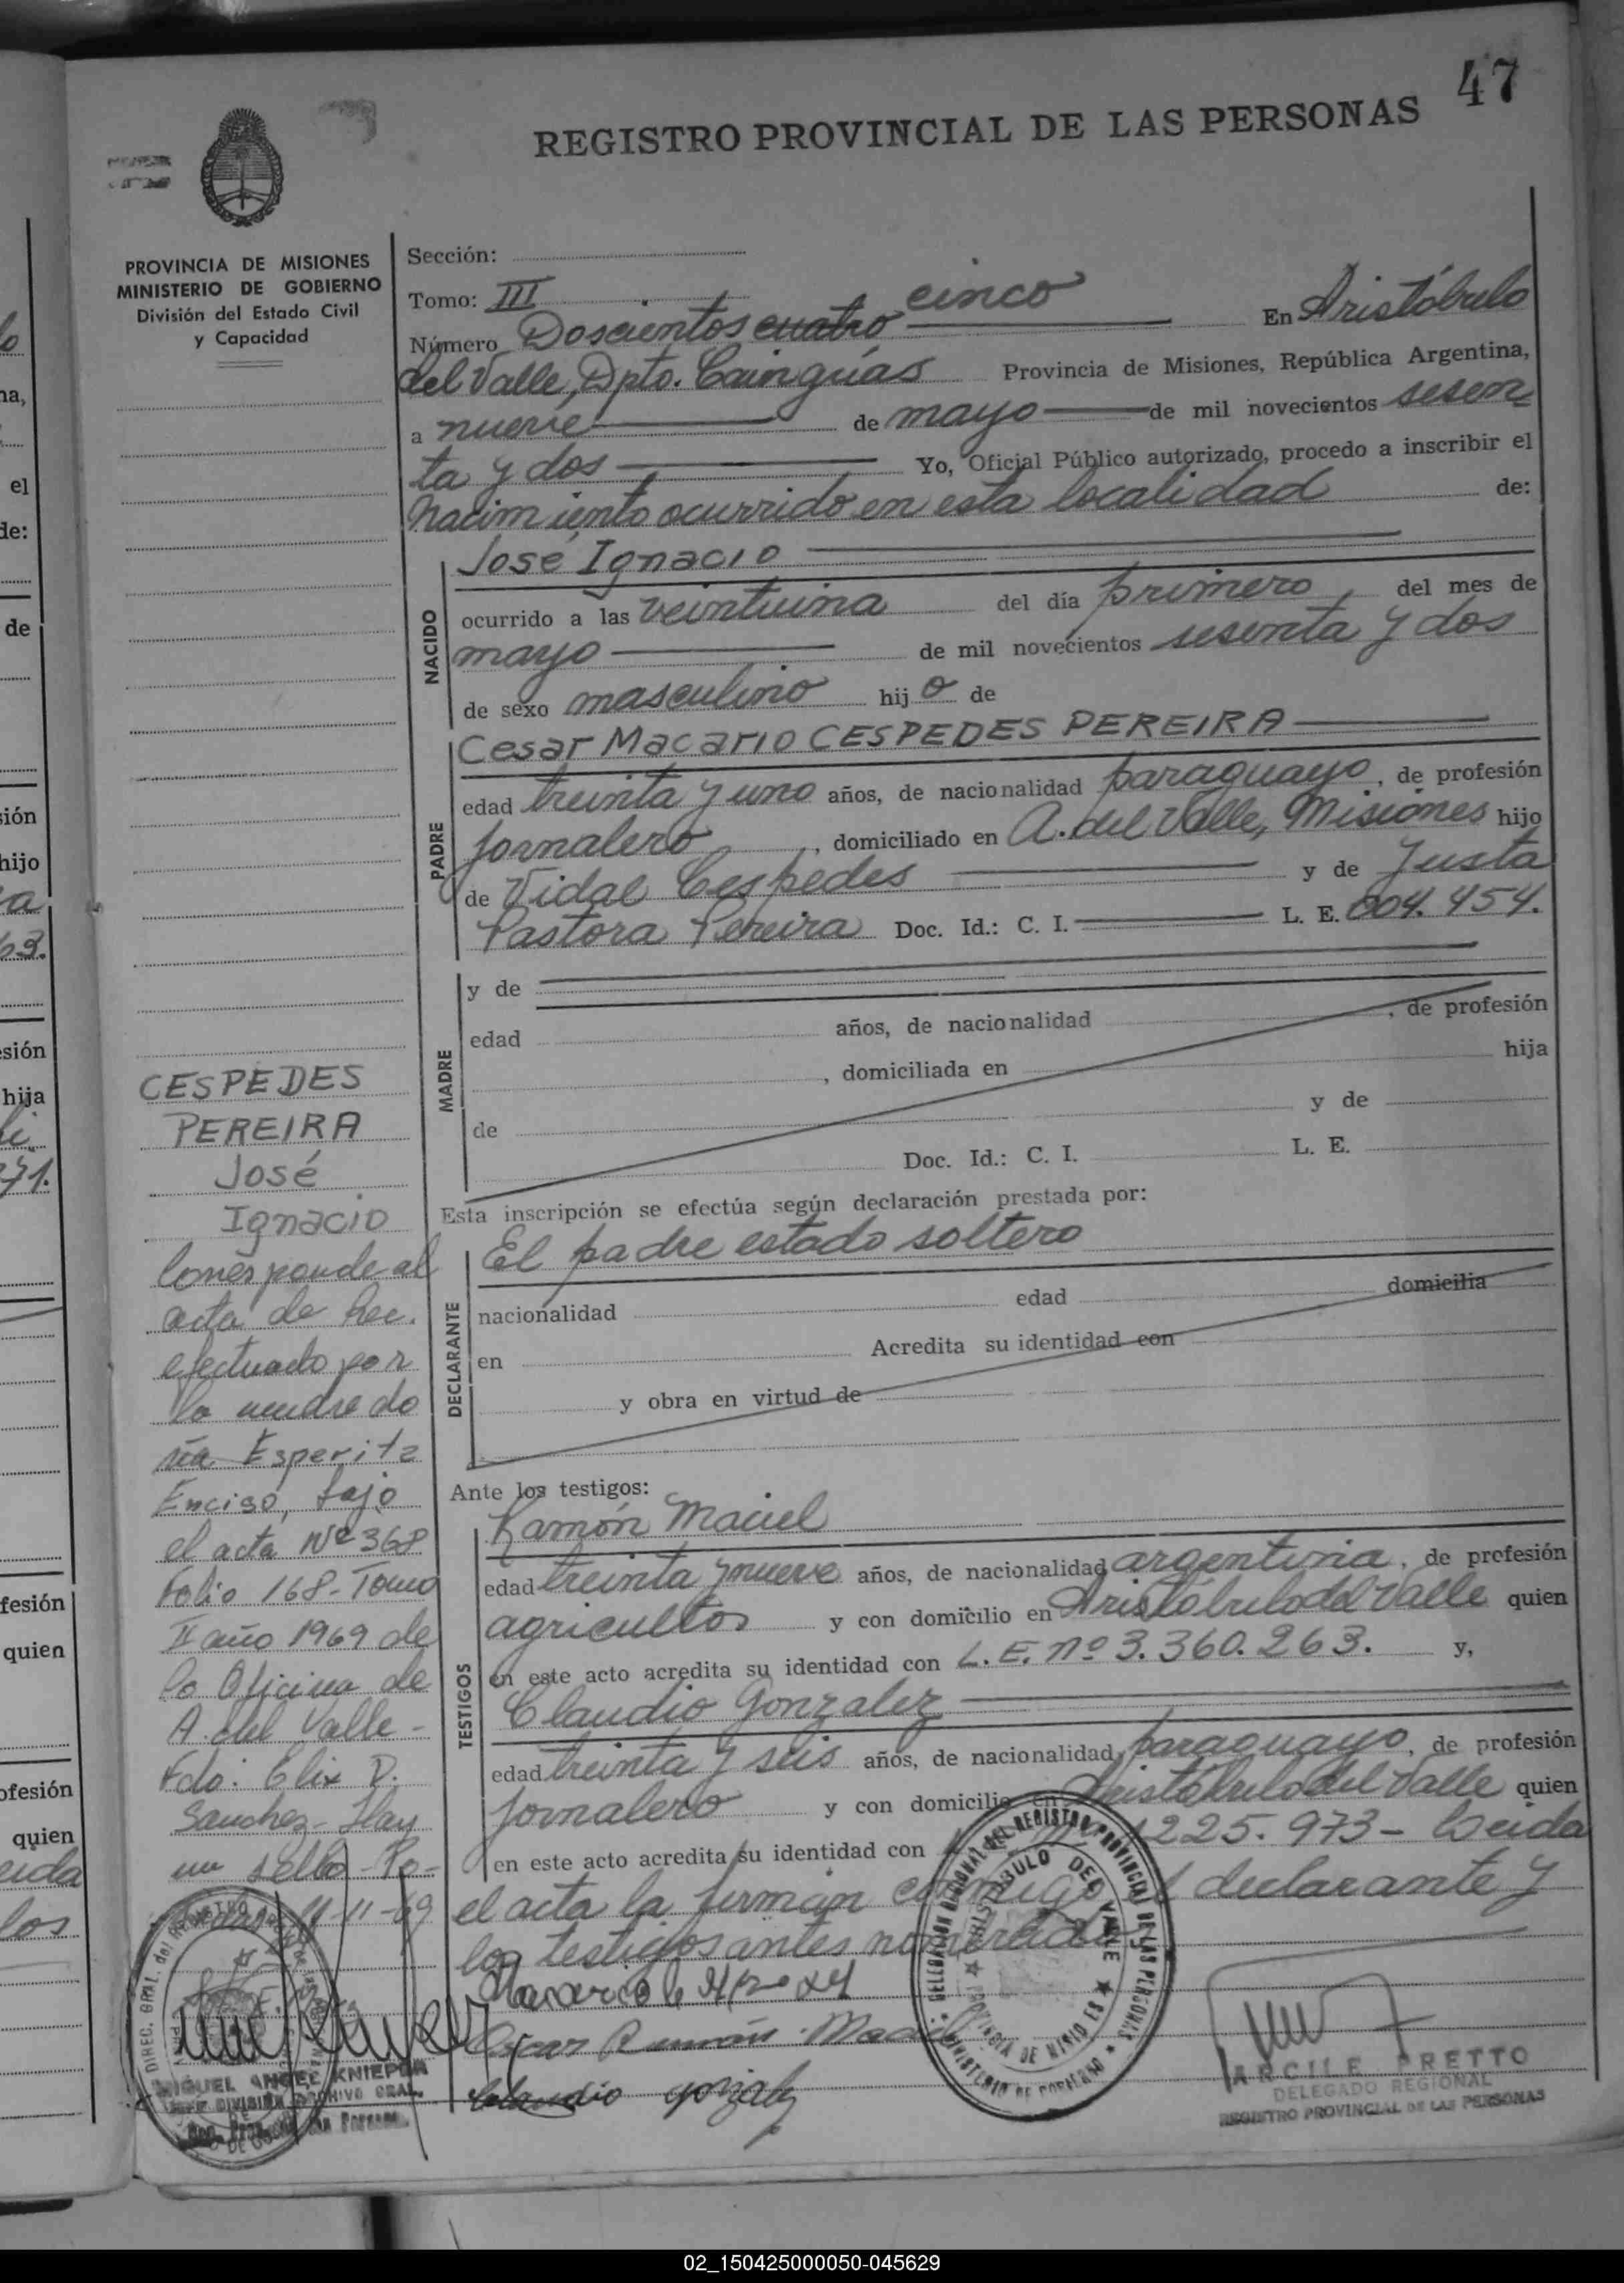 47
REGISTRO PROVINCIAL DE LAS PERSONAS
PROVINCIA DE MISIONES
MINISTERIO DE GOBIERNO
División del Estado Civil
y Capacidad
Sección:
Tomo: III
Número Doscientos cuatro cinco En Aristóbulo
del Valle, Dpto. Cainguás Provincia de Misiones, República Argentina,
a nueve de mayo de mil novecientos sesen
ta y dos Yo, Oficial Público autorizado, procedo a inscribir el
nacimiento ocurrido en esta localidad de:
NACIDO
José Ignacio
ocurrido a las veintiuna del día primero del mes de
mayo de mil novecientos sesenta y dos
de sexo masculino hijo de
PADRE
Cesar Macario CESPEDES PEREIRA
edad treinta y uno años, de nacionalidad paraguayo, de profesión
jornalero, domiciliado en A. del Valle, Misiones hijo
de Vidal Cespedes y de Justa
Pastora Pereira Doc. Id.: C. I. L. E. 004.454.
MADRE
y de
edad años, de nacionalidad , de profesión
, domiciliada en hija
de y de
Doc. Id.: C. I. L. E.
Esta inscripción se efectúa según declaración prestada por:
DECLARANTE
El padre estado soltero
nacionalidad edad domicilia
en Acredita su identidad con
y obra en virtud de
Ante los testigos:
TESTIGOS
Ramón Maciel
edad treinta y nueve años, de nacionalidad argentina, de profesión
agricultor y con domicilio en Aristóbulo del Valle quien
en este acto acredita su identidad con L.E. nº 3.360.263. y,
Claudio Gonzalez
edad treinta y seis años, de nacionalidad paraguayo, de profesión
jornalero y con domicilio en Aristóbulo del Valle quien
en este acto acredita su identidad con 225.973- Leida
el acta la firman conmigo el declarante y
los testigos antes nombrados
Oscar Ramón Maciel
Claudio gonzalez
CESPEDES
PEREIRA
José
Ignacio
Corresponde al
acta de Rec.
efectuado por
la madre do
ña Esperita
Enciso, bajo
el acta Nº 368
Folio 168- Tomo
II año 1969 de
la Oficina de
A. del Valle-
Fdo: Elix D.
Sanchez- Hay
un sello- Po-
11-11-69
MIGUEL ANGEL KNIEPER
JEFE DIVISIÓN ARCHIVO GRAL.
DELEGACION REGIONAL DEL REGISTRO PROVINCIAL DE LAS PERSONAS
ARISTOBULO DEL VALLE
PROVINCIA DE MISIONES
MINISTERIO DE GOBIERNO
ARCILE PRETTO
DELEGADO REGIONAL
REGISTRO PROVINCIAL DE LAS PERSONAS
na,
el
de:
de
sión
hijo
63.
esión
hija
71.
fesión
quien
ofesión
quien
02_150425000050-045629